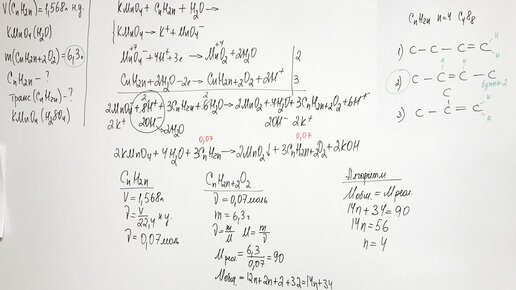 V(CnH2n) = 1,568л н.у.
KMnO4 (H2O)
m(CnH2n+2O2) = 6,3г
CnH2n - ?
Транс(CnH2n) - ?
KMnO4 (H2SO4)
KMnO4 + CnH2n + H2O →
KMnO4 → K+ + MnO4-
+7 +4
MnO4- + 4H+ + 3e → MnO2 + 2H2O | 2
CnH2n + 2H2O - 2e → CnH2n+2O2 + 2H+ | 3
2MnO4- + 8H+ + 3CnH2n + 6H2O → 2MnO2 + 4H2O + 3CnH2n+2O2 + 6H+
2K+ 2OH- 2OH- 2K+
2H2O
0,07 0,07
2KMnO4 + 4H2O + 3CnH2n → 2MnO2↓ + 3CnH2n+2O2 + 2KOH
CnH2n
V = 1,568л
ν = V/22,4 н.у.
ν = 0,07моль
CnH2n+2O2
ν = 0,07моль
m = 6,3г
ν = m/M M = m/ν
Mреал = 6,3/0,07 = 90
Mобщ = 12n + 2n + 2 + 32 = 14n + 34
Алгоритм
Mобщ. = Mреал.
14n + 34 = 90
14n = 56
n = 4
CnH2n n=4 C4H8
1) C - C - C = C H H
2) C - C = C - C H H
бутен-2
3) C - C = C H H
C